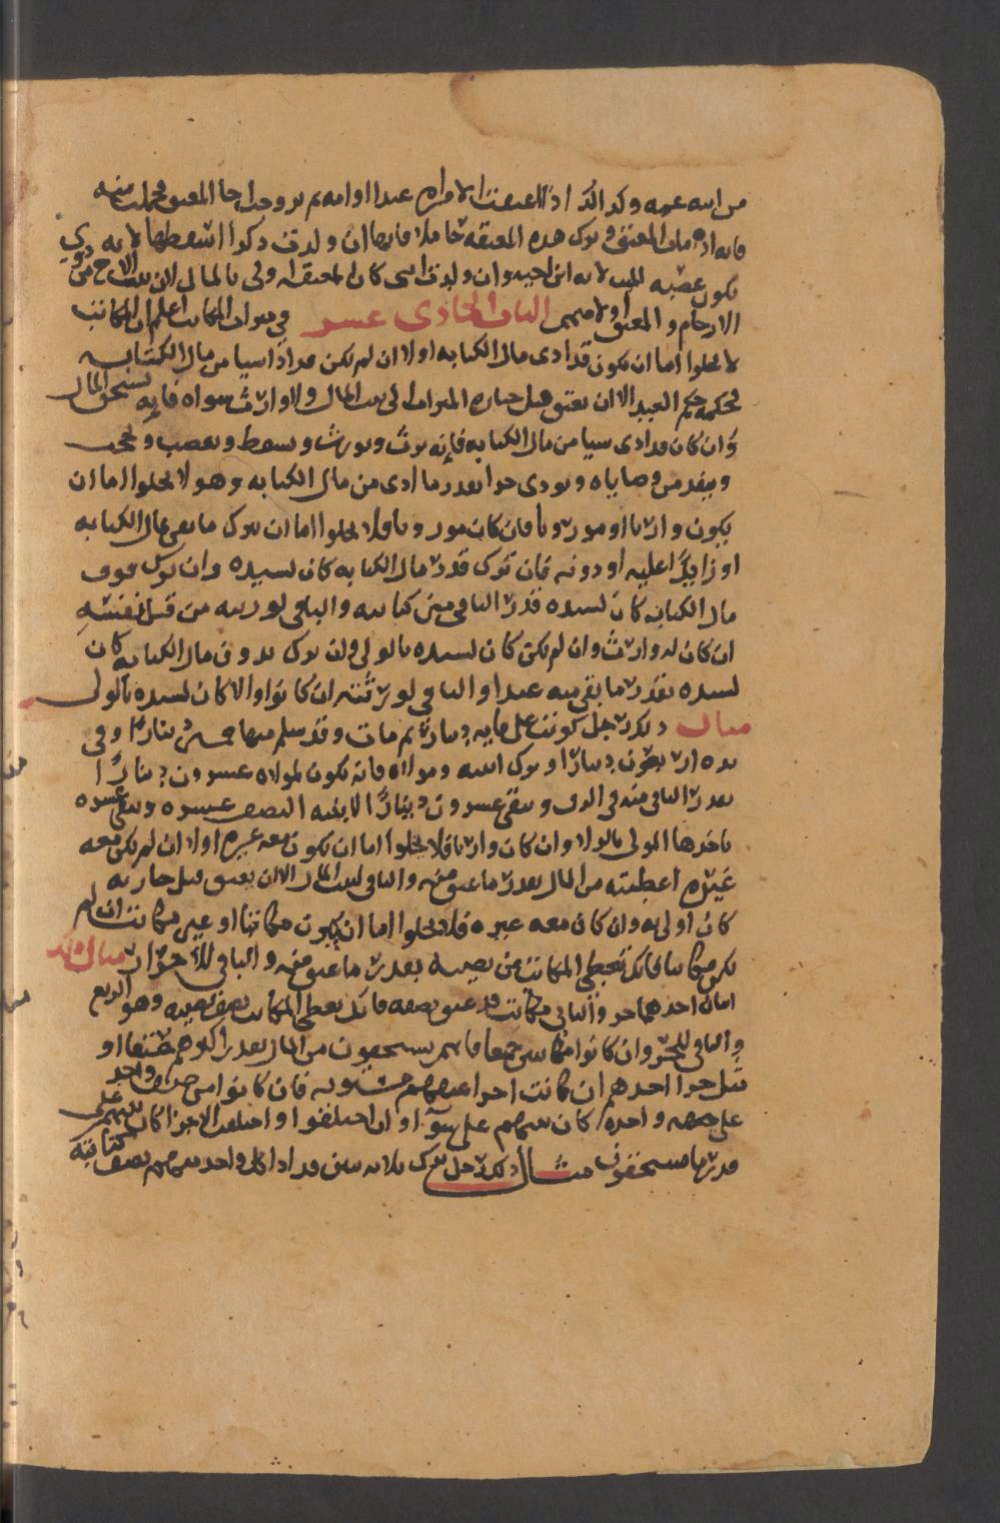 من ابنه عمه وكذلك اذا اعتقت الامراه عبدا او امه ثم تزوجها اخا المعتق فحملت منه
فانه اذا مات المعتق وترك هذه المعتقه حاملا فانها ان ولدت ذكرا اسقطها لانه
يكون عصبه الميت لانه ابن اخيه وان ولدت انثى كان المعتقه اولى بالمال لان بنت الاخ من ذوي
الارحام والمعتق اولا منهم الباب الحادي عشر في ميراث المكاتب اعلم ان المكاتب
لا يخلوا اما ان يكون قد ادى مال الكتابه اولا ان لم يكن قد ادا شيا من مال الكتابه
فحكمه حكم العبد الا ان يعتق قبل حيازه الميراث الى بيت المال ولا وارث سواه فانه يستحق المال
وان كان قد ادى شيا من مال الكتابه فانه يرث ويورث ويسقط ويعصب ويحجب
وينفذ من وصاياه ويودي حدا بقدر ما ادى من مال الكتابه وهو لا يخلوا اما ان
يكون وارثا او موروثا فان كان موروثا فلا يخلوا اما ان يترك ما بقي مال الكتابه
او زايدا عليه او دونه فان ترك قدر مال الكتابه كان لسيده وان ترك فوق
مال الكتابه كان لسيده قدر الباقي من كتابته والباقي لورثته من قبل نفسه
ان كان له وارث وان لم يكن كان لسيده بالولى وان ترك دون مال الكتابه كان
لسيده بقدر ما بقي فيه عبدا والباقي لورثته ان كانوا والا كان لسيده بالولى
مثال ذلك رجل كوتب على مايه دينار ثم مات وقد سلم منها خمسين دينارا وفي
يده اربعون دينارا وترك ابنته ومولاه فانه يكون لمولاه عشرون دينارا
بقدر الباقي منه في الرق ويبقى عشرون دينارا لابنته النصف عشره وتبقى عشره
ياخذها المولى بالولاء وان كان وارثا فلا يخلوا اما ان يكون معه غيره اولا ان لم يكن معه
غيره اعطيته من المال بقدر ما عتق منه والباقي لبيت المال الا ان يعتق قبل حيازته
كان اولى به وان كان معه غيره فلا يخلوا اما ان يكون مكاتبا او غير مكاتب ان لم
يكن مكاتبا فانك تعطي المكاتب من نصيبه بقدر ما عتق منه والباقي للاحرار مثال ذلك
ابنان احدهما حر والثاني مكاتب قد عتق نصفه فانك تعطي المكاتب نصف نصيبه وهو الربع
والباقي للحر وان كانوا مكاتبين جميعا فانهم يستحقون من المال بقدر اكثرهم عتقا او
تنزل حرا احدهم ان كانت اجزا عتقهم مستويه فان كانوا من جنس واحد
على جهه واحده كان بينهم على سوآ وان اختلفوا او اختلفت الاجزا كان بينهم على
قدر ما يستحقون مثال ذلك رجل ترك ثلاثه بنين قد ادا كل واحد منهم نصف كتابته